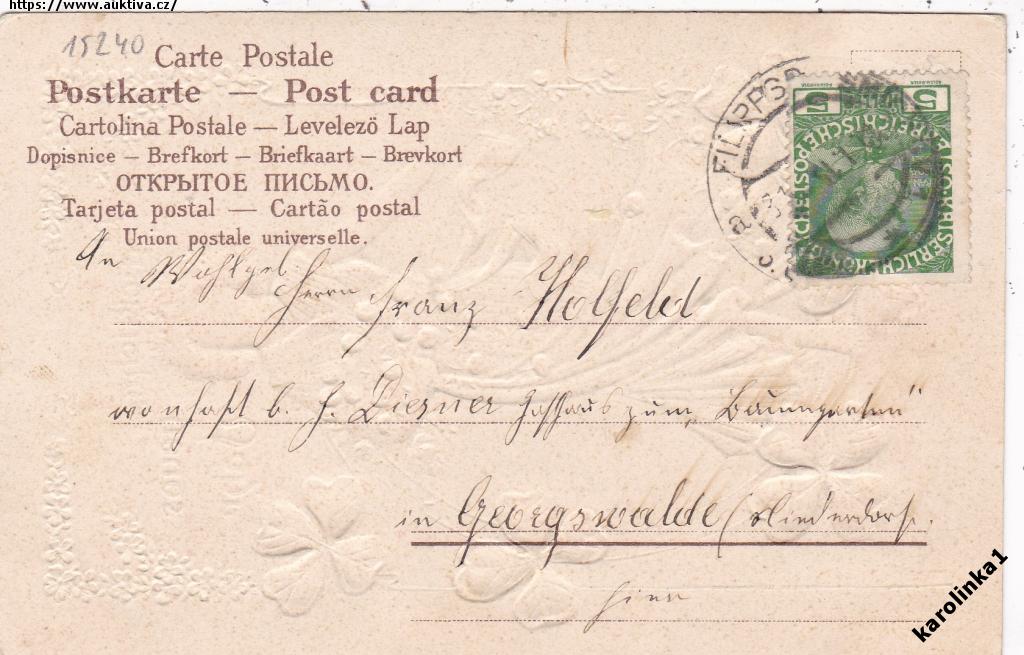 https://www.auktiva.cz/
15240
Carte Postale
Postkarte — Post card
Cartolina Postale — Levelező Lap
Dopisnice – Brefkort – Briefkaart – Brevkort
ОТКРЫТОЕ ПИСЬМО.
Tarjeta postal — Cartão postal
Union postale universelle.
An
Wohlgeb. Herrn Franz Holfeld
wonhaft b. H. Gasthaus zum „Baumgarten“
in Georgswalde (Niederdorf.
hier
FILIPPSD
5 HELLER 5
KAISERLICHE KÖNIGLICHE ÖSTERREICHISCHE POST
karolinka1